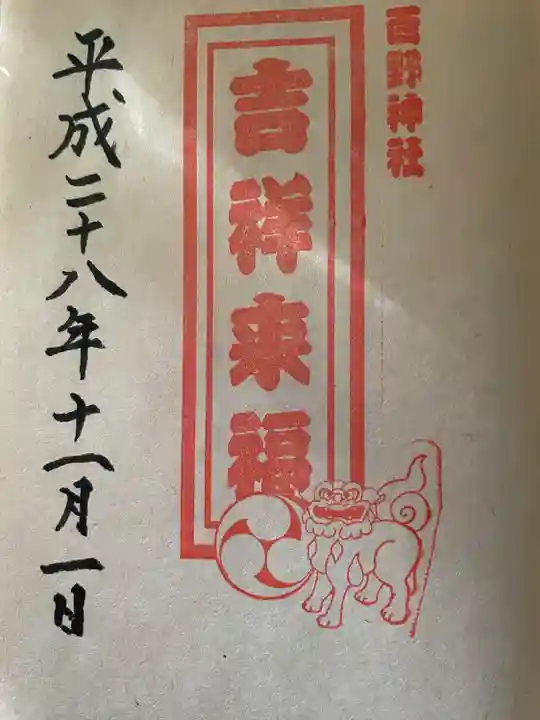 西野神社
吉祥来福
平成二十八年十一月一日